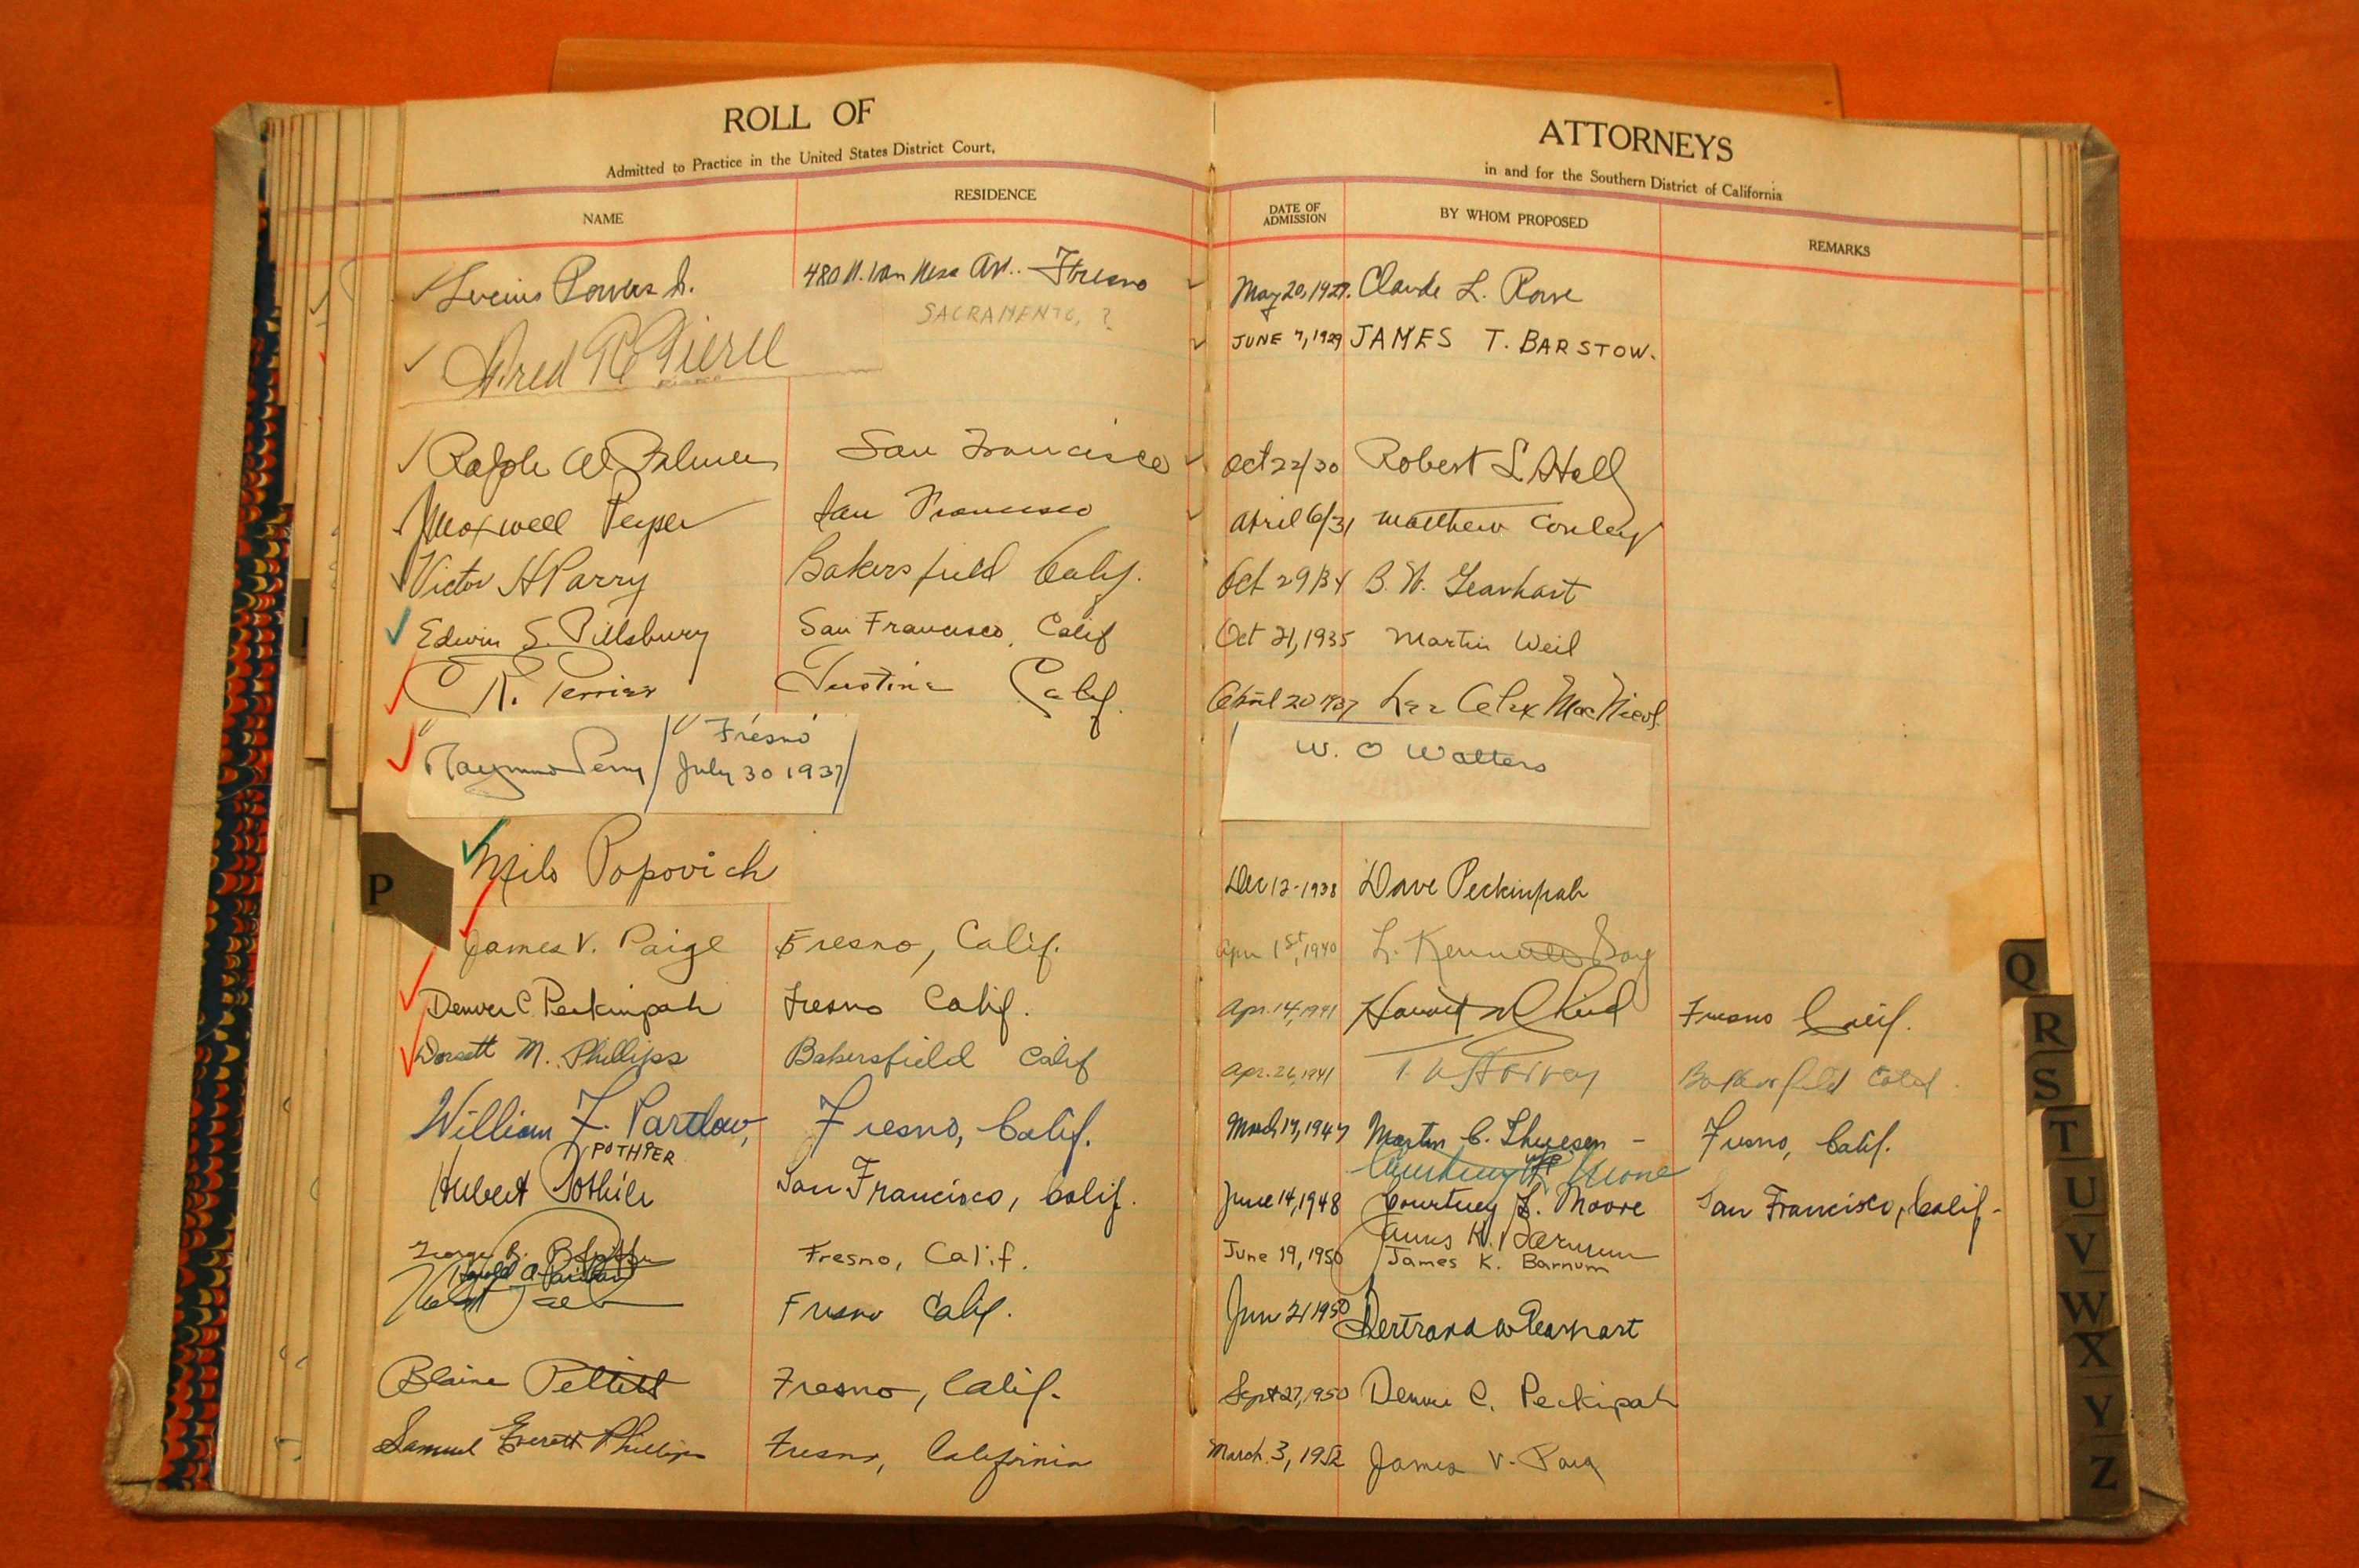 ROLL OF ATTORNEYS
Admitted to Practice in the United States District Court, in and for the Southern District of California
NAME RESIDENCE DATE OF ADMISSION BY WHOM PROPOSED REMARKS
Lucius Powers Jr. 480 N. Van Ness Av.. Fresno May 20, 1929. Claude L. Rowe
SACRAMENTO, ?
Pierce JUNE 7, 1929 JAMES T. BARSTOW.
Ralph W Palmer San Francisco Oct 22/30 Robert L. Hall
Maxwell Peyser San Francisco April 6/31 Matthew Conley
Victor H Parry Bakersfield Calif. Oct 29/34 B. W. Gearhart
Edwin S. Pillsbury San Francisco, Calif Oct 21, 1935 Martin Weil
C R. Perrier Calif. April 20 1937
Raymond Perry / Fresno July 30 1937 / W. O Walters
Milo Popovich Dec 12-1938 Dave Peckinpah
James V. Paige Fresno, Calif. Apr 1st, 1940 L. Kenneth Say
Denver C. Peckinpah Fresno Calif. Apr. 14, 1941 Fresno Calif.
Dorsett M. Phillips Bakersfield Calif Apr. 26, 1941 Bakersfield Calif.
William F. Partlow, Fresno, Calif. March 17, 1947 Martin C. Thuesen - Fresno, Calif.
POTHIER Courtney L Moore
Hubert Pothier San Francisco, Calif. June 14, 1948 Courtney L. Moore San Francisco, Calif-
James K. Barnum
George B. Fresno, Calif. June 19, 1950 James K. Barnum
Harold A.
Fresno Calif. Jun 21 1950 Bertrand W Gearhart
Blaine Pettitt Fresno, Calif. Sept 27, 1950 Denver C. Peckinpah
Samuel Everett Phillips Fresno, California March. 3, 1952 James V. Paige
P
Q
R
S
T
U
V
W
X
Y
Z